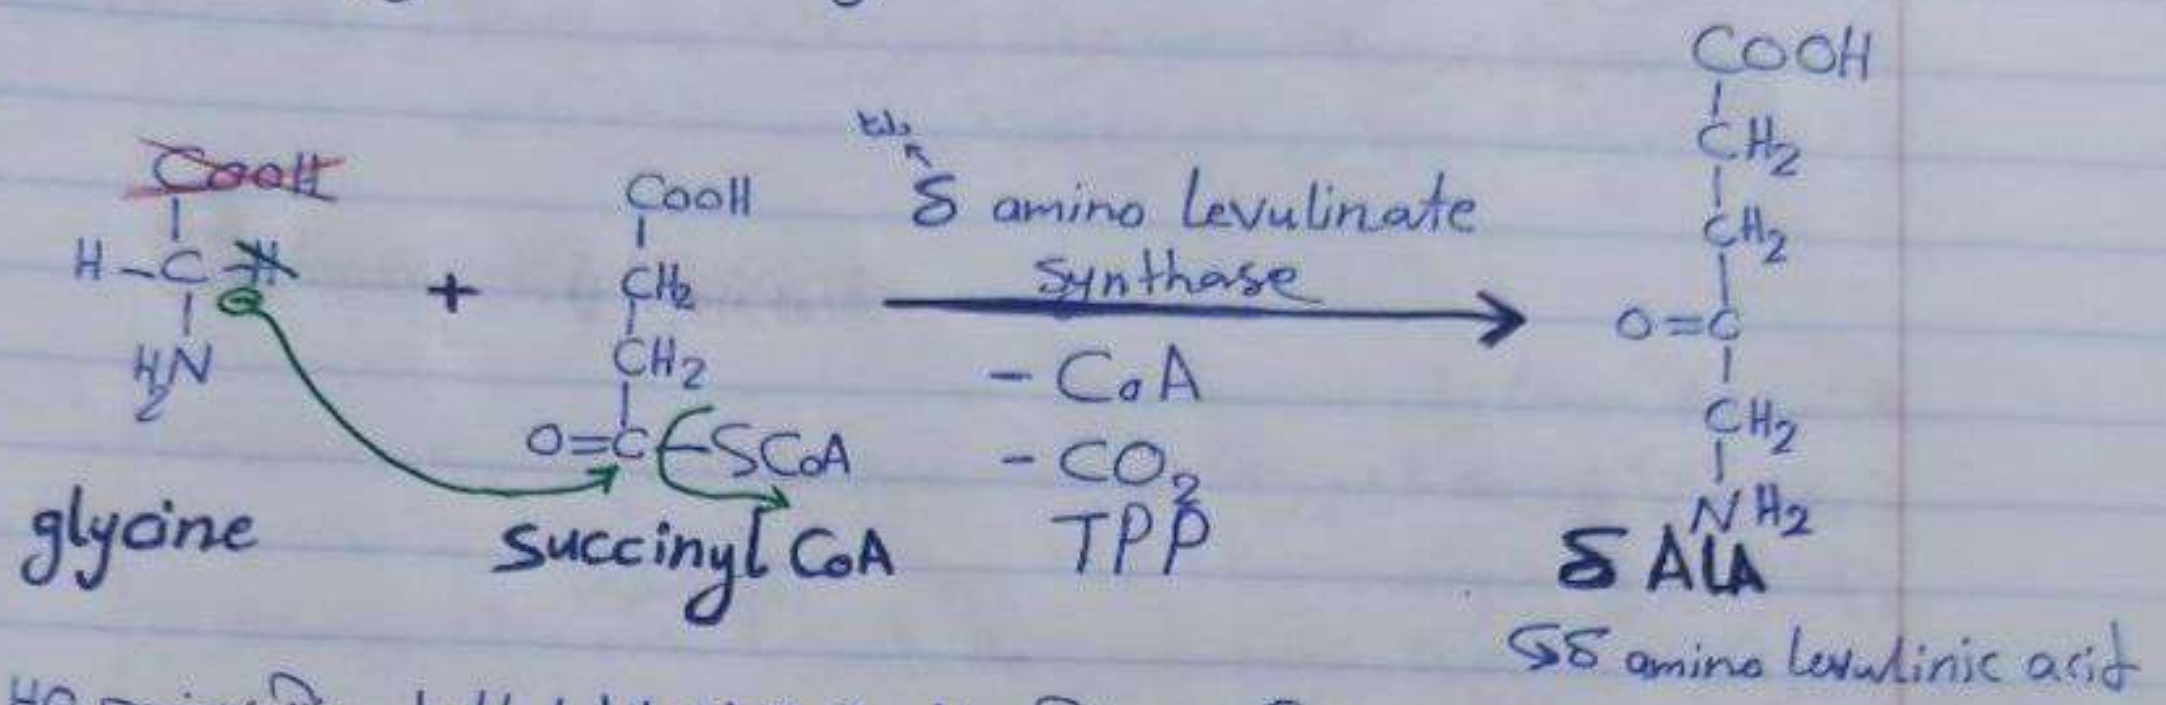 COOH
H-C-H
H2N
glycine
+
COOH
CH2
CH2
O=C-SCoA
Succinyl CoA
δ amino Levulinate
synthase
- CoA
- CO2
TPP
COOH
CH2
CH2
O=C
CH2
NH2
δ ALA
δδ amino levulinic acid